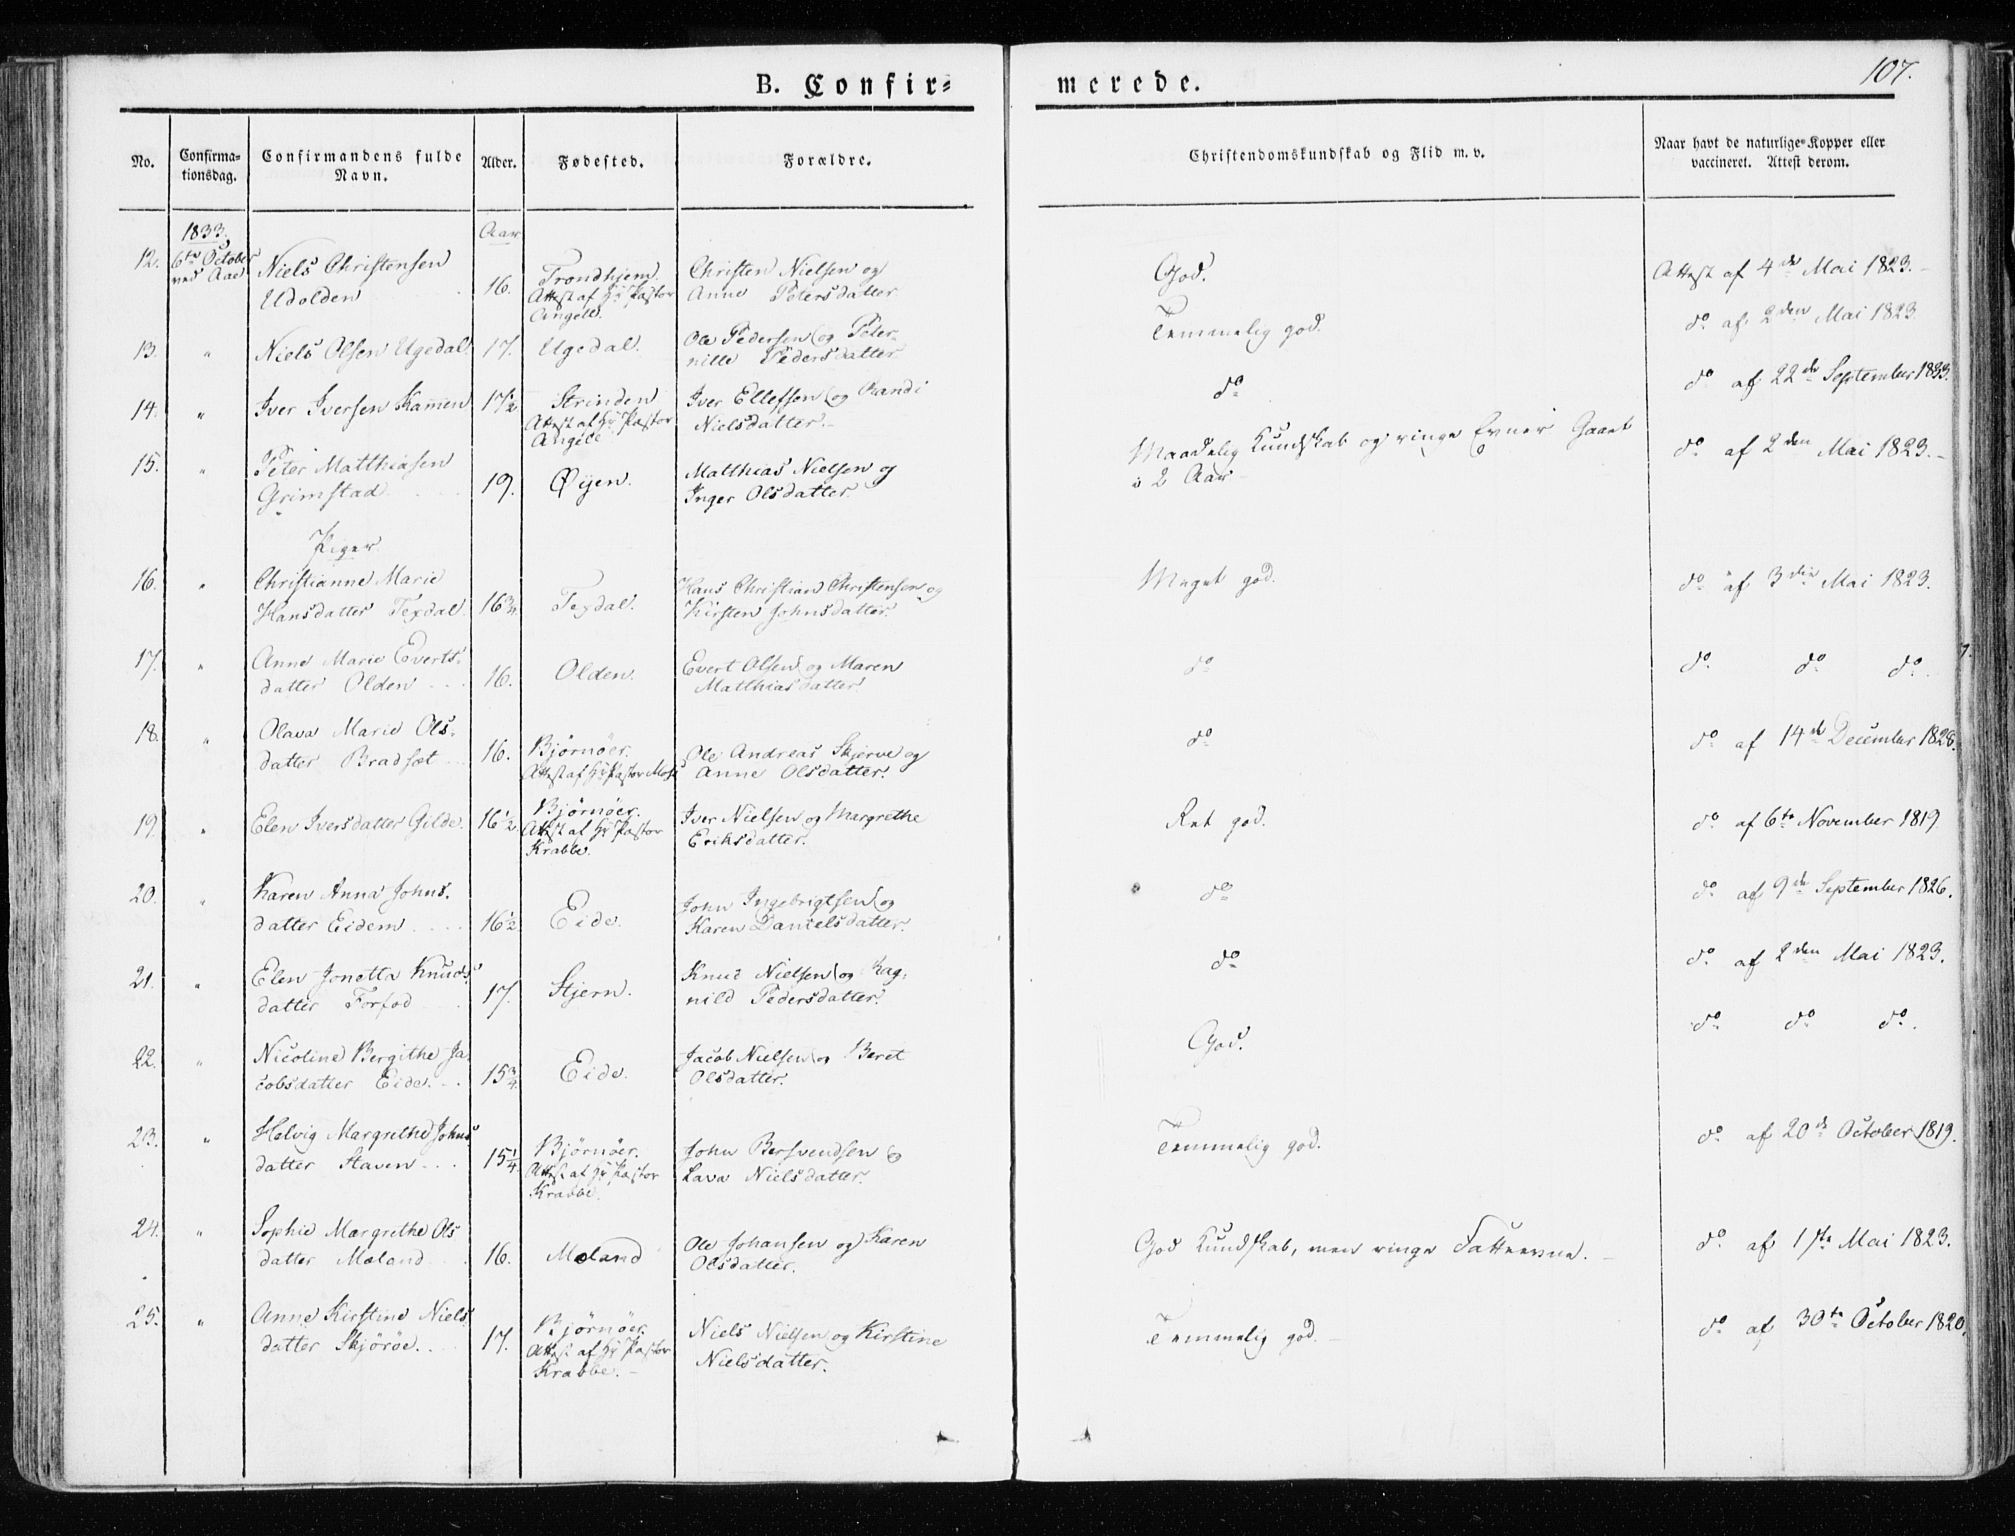 107.
B. Confirmerede.
No.
Confirmationsdag.
Confirmandens fulde Navn.
Alder.
Fødested.
Forældre.
Christendomskundskab og Flid m. v.
Naar havt de naturlige Kopper eller vaccineret. Attest derom.
1833.
Aar
12. 6te October ved Aae
Niels Christensen
Udolden
16.
Trondhjem.
Attest af Hr Pastor
Angell.
Christen Nielsen og
Anne Petersdatter
God.
Attest af 4de Mai 1823.
13. "
Niels Olsen Ugedal.
17.
Ugedal.
Ole Pedersen og Peter-
nille Pedersdatter.
Temmelig god.
do af 2den Mai 1823.
14. "
Iver Iversen Kammen
17½
Strinden
Attest af Hr Pastor
Angell
Iver Ellefsen og Randi
Nielsdatter.
do
do af 22de September 1833.
15. "
Peter Matthiasen
Grimstad
19.
Øyen.
Matthias Nielsen og
Inger Olsdatter.
Maadelig Kundskab og ringe Evner Gaaet
i 2 Aar
do af 2den Mai 1823.
Piger
16. "
Christianne Marie
Hansdatter Texdal.
16¾
Texdal.
Hans Christian Christensen og
Kirsten Johnsdatter.
Meget god.
do af 3die Mai 1823.
17. "
Anne Marie Everts-
datter Olden
16.
Olden.
Evert Olsen og Maren
Matthiasdatter.
do
do do do.
18. "
Olava Marie Ols-
datter Bradsæt
16.
Bjørnøer.
Attest af Hr Pastor
Ole Andreas Skjerve og
Anne Olsdatter.
do
do af 14de December 1828.
19. "
Elen Iversdatter Gilde.
16½
Bjørnøer.
Attest af Hr Pastor
Krabbe.
Iver Nielsen og Margrethe
Eriksdatter.
Ret god.
do af 6te November 1819.
20. "
Karen Anna Johns-
datter Eidem
16½
Eide.
John Ingebrigtsen og
Karen Danielsdatter.
do
do af 9de September 1826.
21. "
Elen Jonetta Knuds-
datter Forfod
17.
Stjern.
Knud Nielsen og Rag-
nild Pedersdatter.
do
do af 2den Mai 1823.
22. "
Nicoline Bergithe Ja-
cobsdatter Eide.
15¾
Eide.
Jacob Nielsen og Beret
Olsdatter.
God.
do do do.
23. "
Helvig Margrethe Johns
datter Staven
15¼
Bjørnøer.
Attest af Hr Pastor
Krabbe.
John Bersvendsen og
Lava Nielsdatter.
Temmelig god.
do af 20de October 1819.
24. "
Sophie Margrethe Ols
datter Mæland
16.
Mæland
Ole Johansen og Karen
Olsdatter.
God Kundskab, men ringe Fatteevne.
do af 1ste Mai 1823.
25. "
Anne Kirstine Niels-
datter Skjørøe.
17.
Bjørnøer.
Attest af Hr Pastor
Krabbe.
Niels Nielsen og Kirstine
Nielsdatter.
Temmelig god.
do af 30te October 1820.